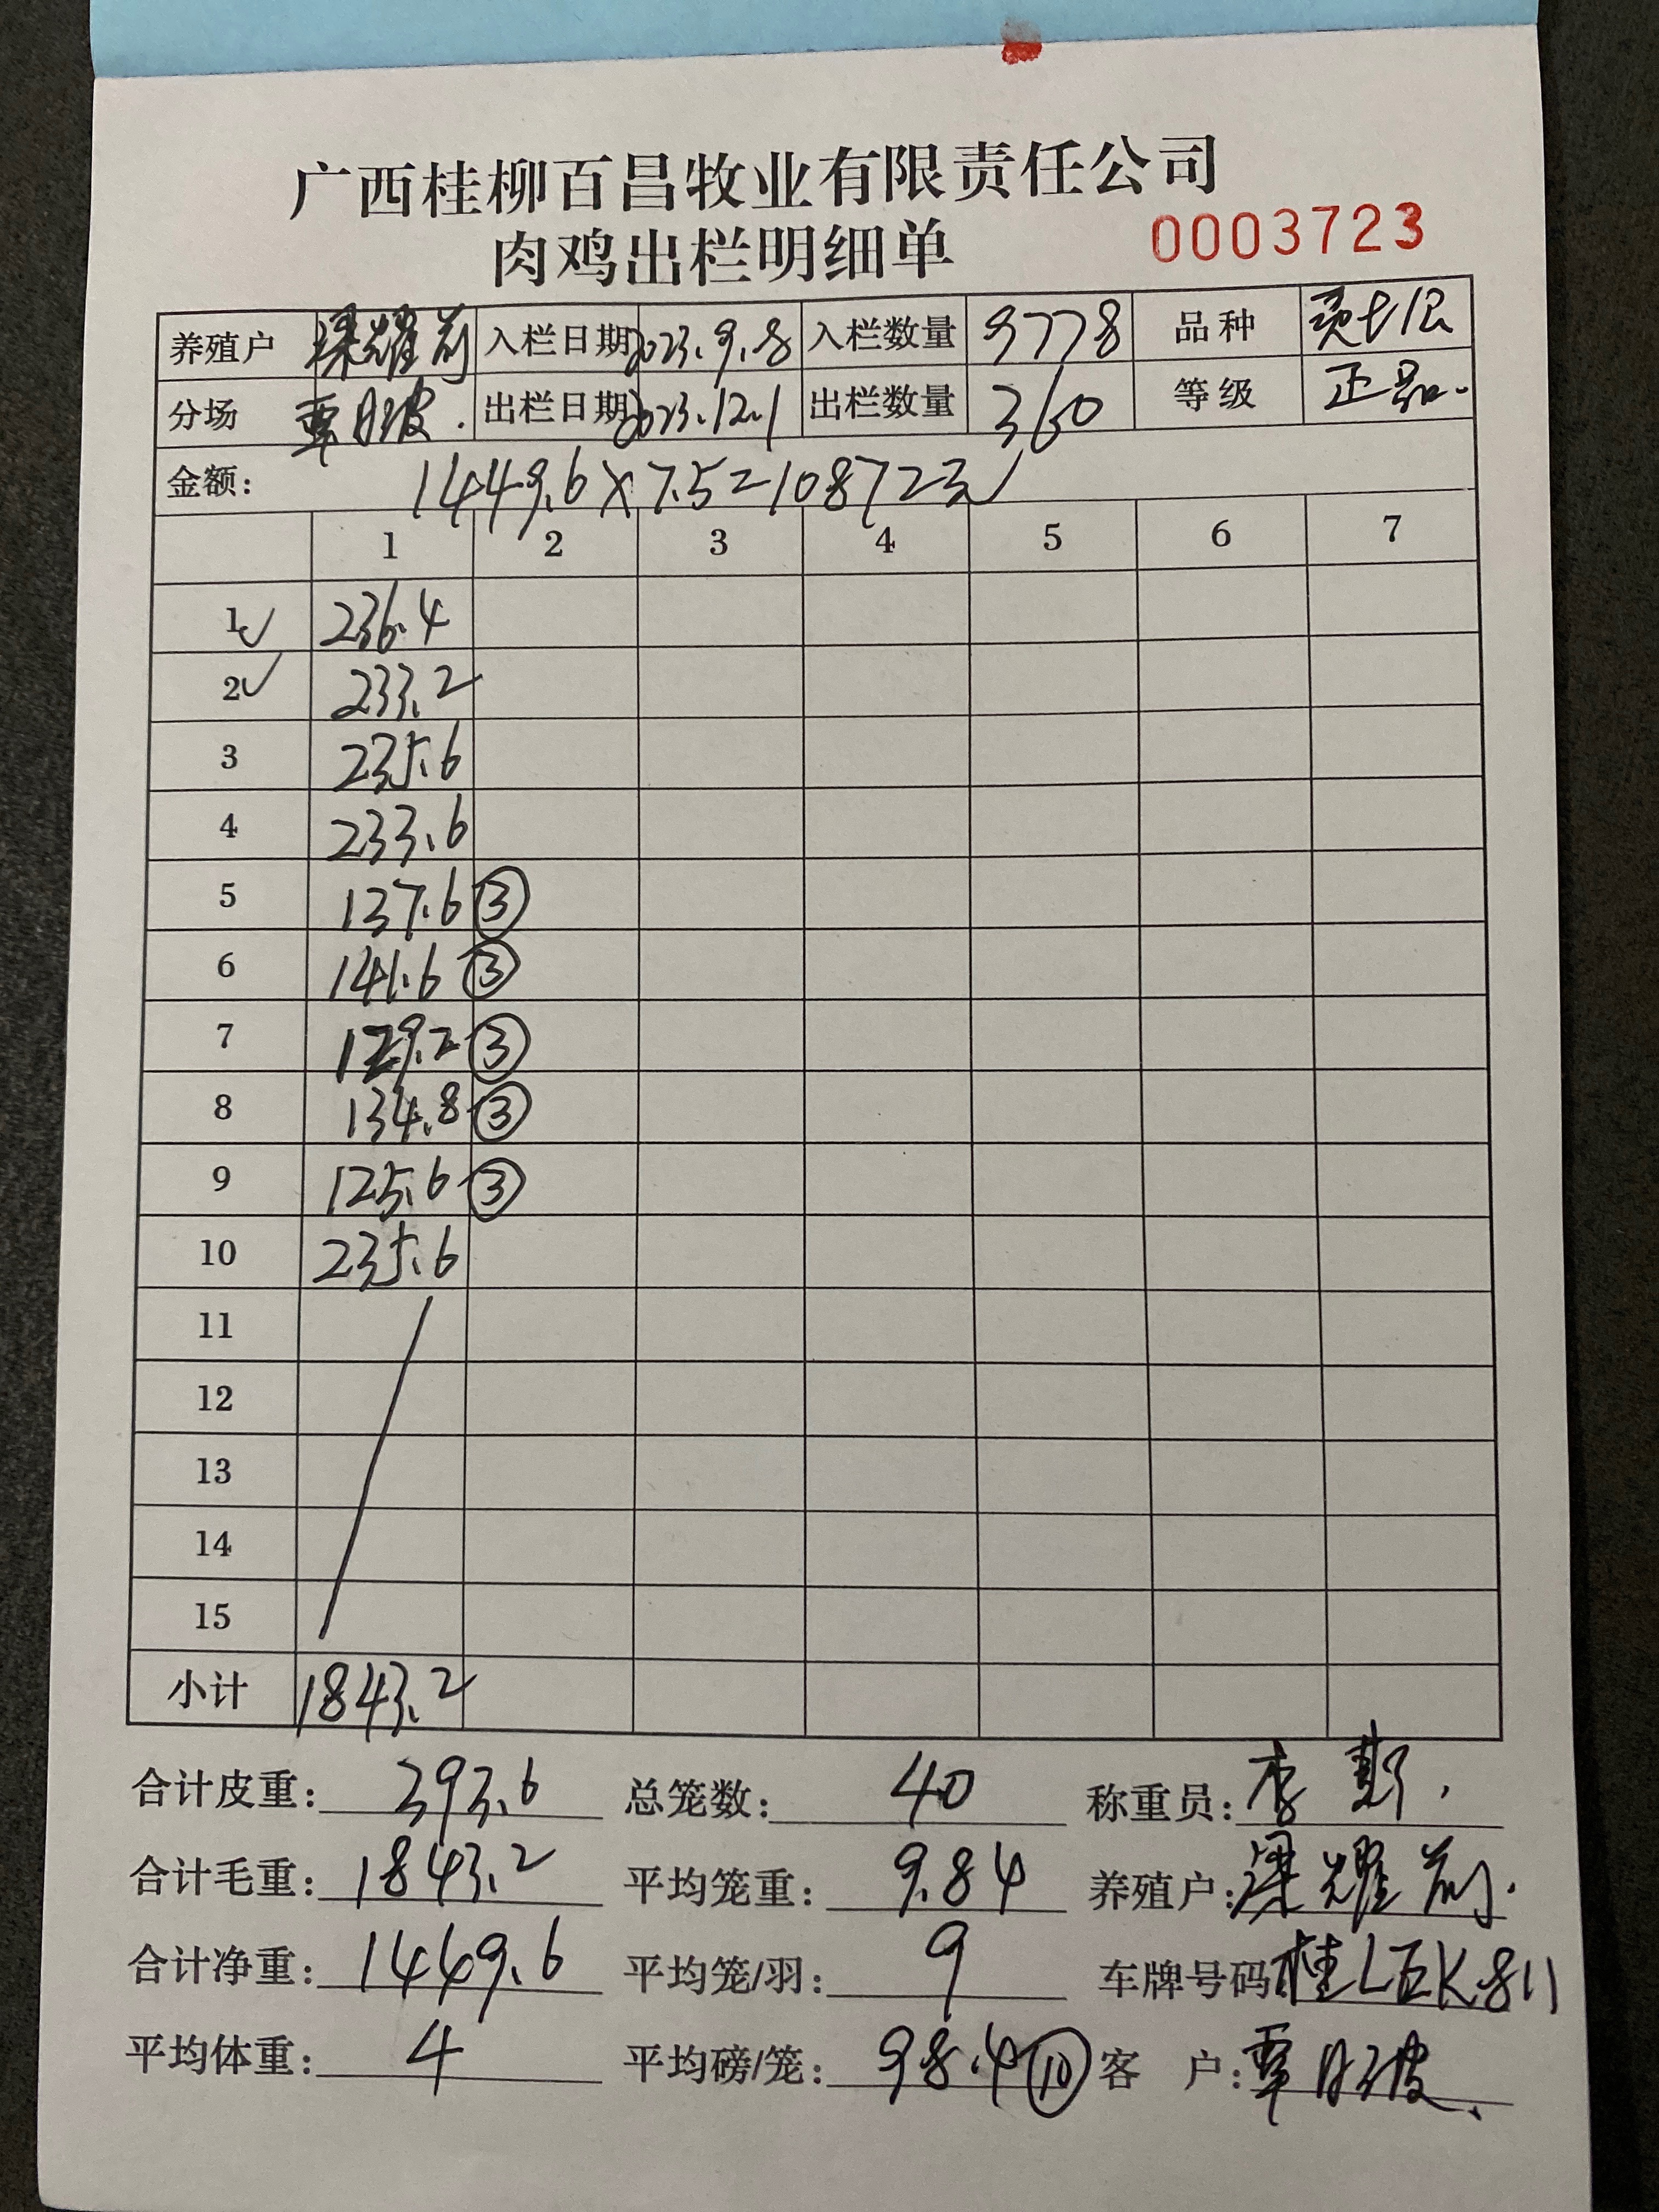 广西桂柳百昌牧业有限责任公司
肉鸡出栏明细单 0003723
养殖户 梁耀前 入栏日期 2023.9.8 入栏数量 9778 品种
分场 覃月波. 出栏日期 2023.12.1 出栏数量 360 等级 正品.
金额: 1449.6×7.5=10872元
1 2 3 4 5 6 7
1✓ 236.4
2✓ 233.2
3 235.6
4 233.6
5 137.6 ③
6 141.6 ③
7 129.2 ③
8 134.8 ③
9 125.6 ③
10 235.6
11
12
13
14
15
小计 1843.2
合计皮重: 393.6 总笼数: 40 称重员: 李
合计毛重: 1843.2 平均笼重: 9.84 养殖户: 梁耀前.
合计净重: 1449.6 平均笼/羽: 9 车牌号码 桂LEK811
平均体重: 4 平均磅/笼: 98.4 ⑩ 客 户: 覃月波.